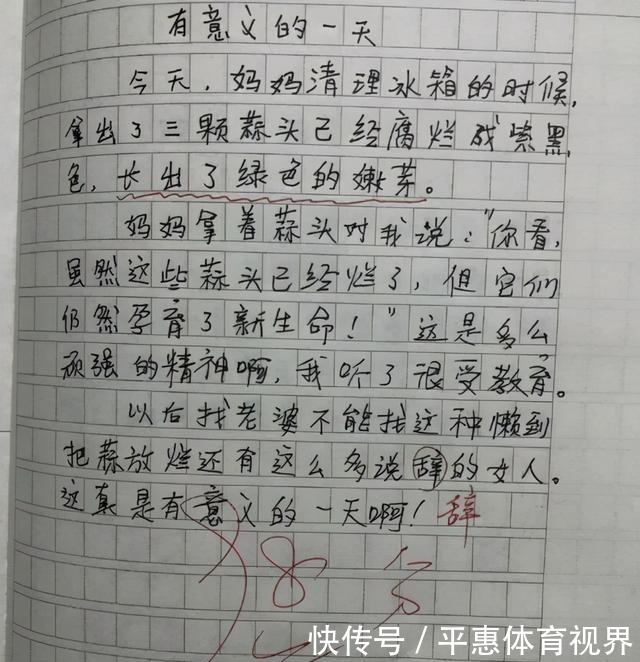 有意义的一天
今天，妈妈清理冰箱的时候，
拿出了三颗蒜头已经腐烂成紫黑
色，长出了绿色的嫩芽。
妈妈拿着蒜头对我说："你看，
虽然这些蒜头已经烂了，但它们
仍然孕育了新生命！"这是多么
顽强的精神啊，我听了很受教育。
以后找老婆不能找这种懒到
把蒜放烂还有这么多说辞的女人。
这真是有意义的一天啊！辞
8分
快传号 / 平惠体育视界